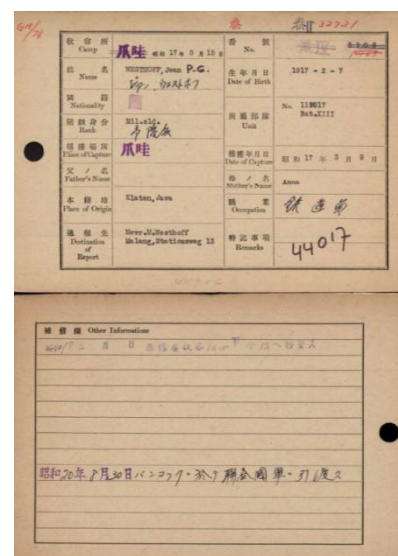 G10/78
32731
收容所 Camp 爪哇 昭和 17年 8月 15日
番號 No.
姓名 Name WESTHOFF, Jean P.G.
生年月日 Date of Birth 1917 - 2 - 7
國籍 Nationality
階級身分 Rank Mil.sld.
所屬部隊 Unit No. 119017 Bat.XIII
捕獲場所 Place of Capture 爪哇
捕獲年月日 Date of Capture 昭和 17年 3月 9日
父ノ名 Father's Name
母ノ名 Mother's Name Anna
本籍地 Place of Origin Klaten, Java
職業 Occupation 鉄道員
通報先 Destination of Report Mevr.M.Westhoff Malang, Stationsweg 13
特記事項 Remarks 44017
補修欄 Other Informations
昭和20年8月30日バンコックニ於テ聯合國軍ニ引渡ス